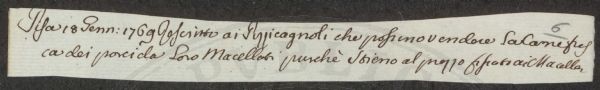 Pisa 18 Genn: 1769 Rescritto ai Pizzicagnoli che possino vendere la Carne fres
6
ca dei porci da loro Macellati purchè stieno al prezzo fissato ai Macellari